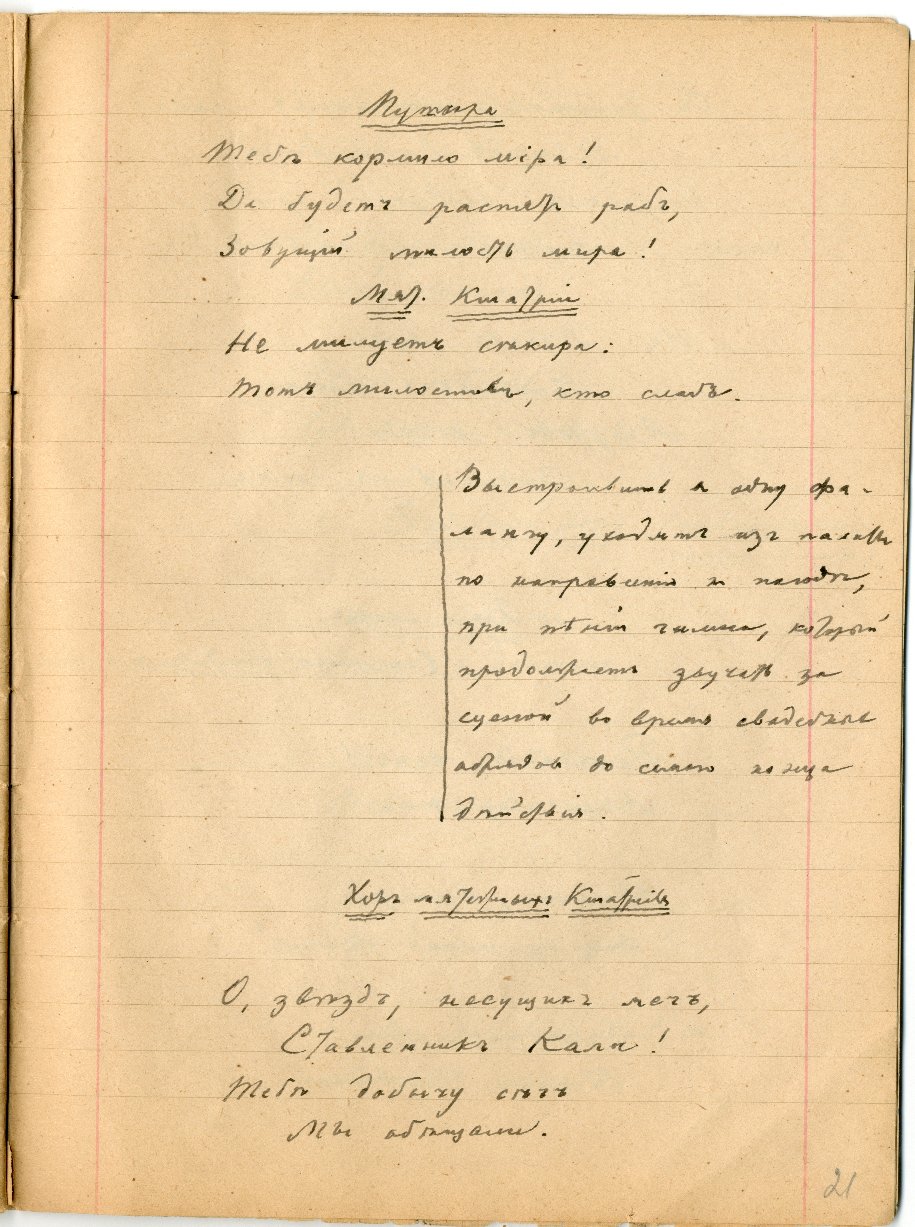 Путкира
Тебѣ кормило міра!
Да будетъ распятъ рабъ,
Зовущій милость мира!
Мят. Кшатріи
Не милуетъ секира:
Тотъ милостивъ, кто слабъ.
Выстроившись въ одну фа-
лангу, уходятъ изъ палатъ
по направленію къ пагодѣ,
при пѣніи гимна, который
продолжаетъ звучать за
сценой во время свадебныхъ
обрядовъ до самаго конца
дѣйствія.
Хоръ мятежныхъ Кшатріевъ
О, звѣздъ, несущихъ мечъ,
Ставленникъ Кали!
Тебѣ добычу сѣчъ
Мы обѣщали.
21